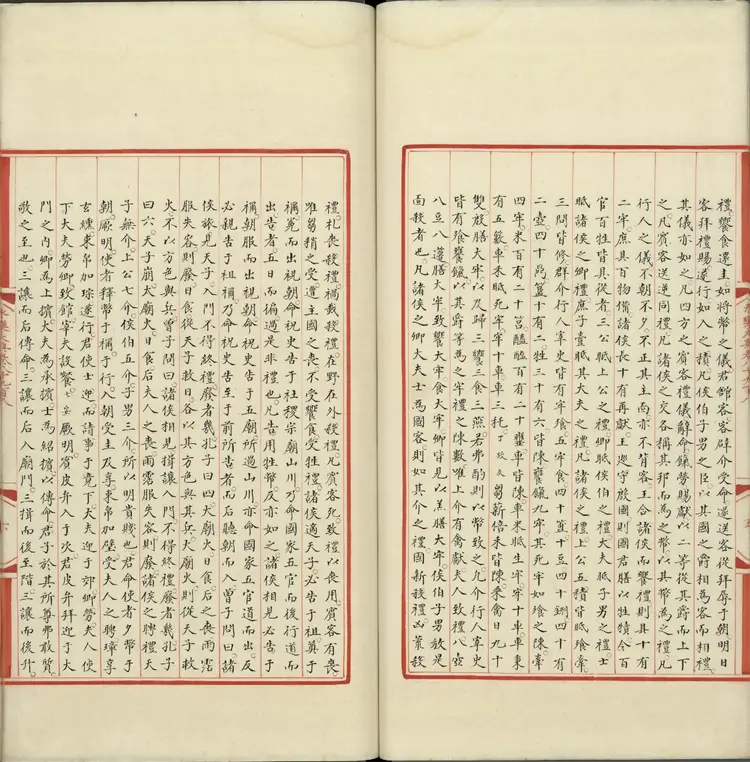 禮饗食還圭如將幣之儀君館客客辟介受命遂送客從拜辱于朝明日
客拜禮賜遂行如入之積凡侯伯子男之臣以其國之爵相為客而相禮
其儀亦如之凡四方之賓客禮儀辭命餼勞賜獻以二等從其爵而上下
之凡賓客送逆同禮凡諸侯之交各稱其邦而為之幣以其幣為之禮凡
行人之儀不朝不夕不正其主面亦不背客王合諸侯而饗禮則具十有
二牢庶具百物備諸侯長十有再獻王巡守殷國則國君膳以牲犢令百
官百牲皆具從者三公眡上公之禮卿眡侯伯之禮大夫眡子男之禮士
眡諸侯之卿禮庶子壹眡其大夫之禮凡諸侯之禮上公五積皆眡飧牽
三問皆修群介行人宰史皆有牢飧五牢食四十簠十豆四十鉶四十有
二壺四十鼎簋十有二牲三十有六皆陳饔餼九牢其死牢如飧之陳牽
四牢米百有二十筥醯醢百有二十罋車皆陳車米眡生牢牢十車車秉
有五籔車禾眡死牢牢十車車三秅芻薪倍禾皆陳乘禽日九十
雙殷膳大牢以及歸三饗三食三燕若弗酌則以幣致之凡介行人宰史
皆有飧饔餼以其爵等為之牢禮之陳數唯上介有禽獻夫人致禮八壺
八豆八籩膳大牢致饗大牢食大牢卿皆見以羔膳大牢侯伯子男放是
而殺者也凡諸侯之卿大夫士為國客則如其介之禮國新殺禮凶荒殺
禮札喪殺禮禍烖殺禮在野在外殺禮凡賓客死致禮以喪用賓客有喪
唯芻稍之受遭主國之喪不受饗食受牲禮諸侯適天子必告于祖奠于
禰冕而出視朝命祝史告于社稷宗廟山川乃命國家五官而後行道而
出告者五日而徧過是非禮也凡告用牲幣反亦如之諸侯相見必告于
禰朝服而出視朝命祝史告于五廟所過山川亦命國家五官道而出反
必親告于祖禰乃命祝史告至于前所告者而后聽朝而入曾子問曰諸
侯旅見天子入門不得終禮廢者幾孔子曰四大廟火日食后之喪雨霑
服失容則廢日食從天子救日各以其方色與其兵大廟火則從天子救
火不以方色與兵曾子問曰諸侯相見揖讓入門不得終禮廢者幾孔子
曰六天子崩大廟火日食后夫人之喪雨霑服失容則廢諸侯之聘禮天
子無介上公七介侯伯五介子男三介所以明貴賤也君命使者夕幣于
朝厥明使者釋幣于禰于行入朝受圭及享束帛加璧受夫人之聘璋享
玄纁束帛加琮遂行君使士迎而請事于竟下大夫迎于郊卿勞夫人使
下大夫勞卿致館宰夫設飧厥明賓皮弁入于次君皮弁拜迎于大
門之內卿為上擯大夫為承擯士為紹擯以傳命君子於其所尊弗敢質
敬之至也三讓而后傳命三讓而后入廟門三揖而後至階三讓而後升